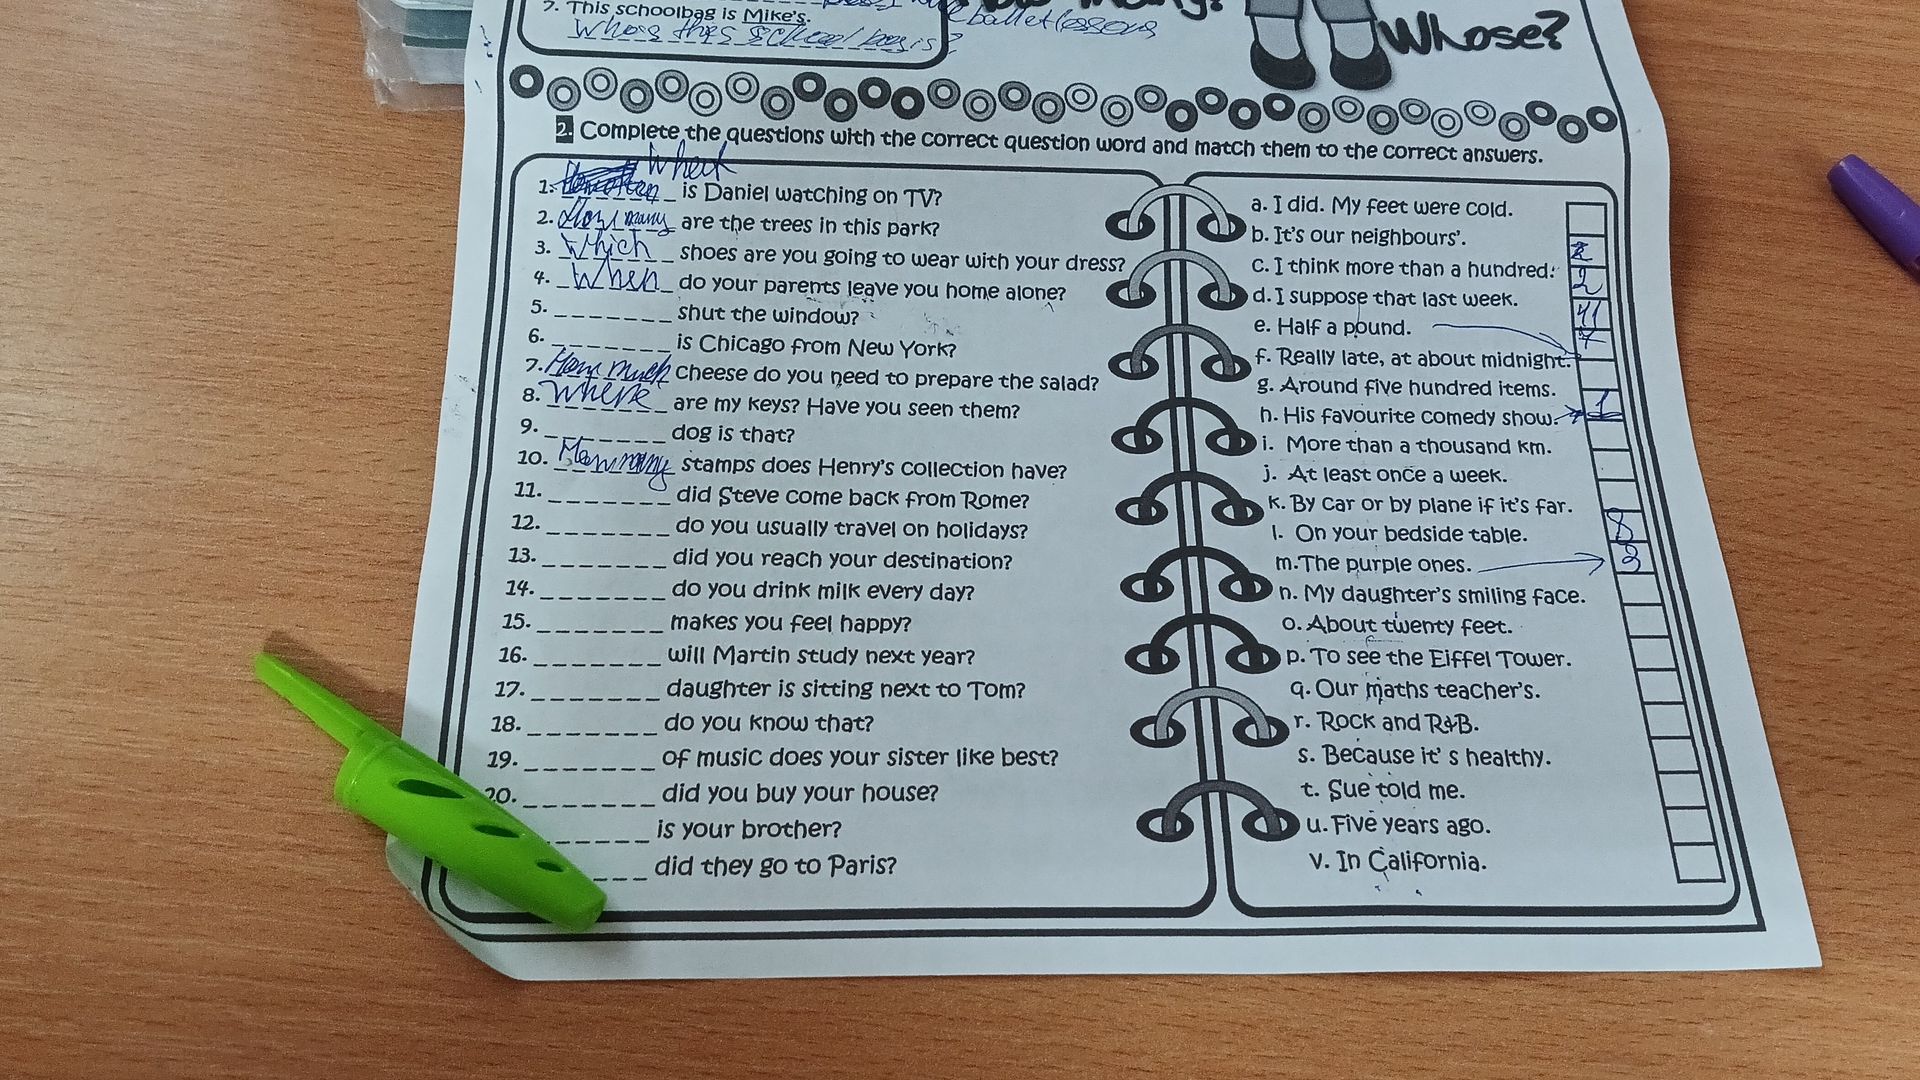 7. This schoolbag is Mike's.
ballet lessons
Whose this school bag is?
Whose?
2. Complete the questions with the correct question word and match them to the correct answers.
What
1. is Daniel watching on TV?
2. How many are the trees in this park?
3. Which shoes are you going to wear with your dress?
4. When do your parents leave you home alone?
5. _______ shut the window?
6. _______ is Chicago from New York?
7. How much cheese do you need to prepare the salad?
8. Where are my keys? Have you seen them?
9. _______ dog is that?
10. How many stamps does Henry's collection have?
11. _______ did Steve come back from Rome?
12. _______ do you usually travel on holidays?
13. _______ did you reach your destination?
14. _______ do you drink milk every day?
15. _______ makes you feel happy?
16. _______ will Martin study next year?
17. _______ daughter is sitting next to Tom?
18. _______ do you know that?
19. _______ of music does your sister like best?
20. _______ did you buy your house?
_____ is your brother?
___ did they go to Paris?
a. I did. My feet were cold.
b. It's our neighbours'.
c. I think more than a hundred. 2
d. I suppose that last week.
e. Half a pound.
f. Really late, at about midnight.
g. Around five hundred items.
h. His favourite comedy show. 1
i. More than a thousand km.
j. At least once a week.
k. By car or by plane if it's far.
l. On your bedside table. 8
m. The purple ones. 3
n. My daughter's smiling face.
o. About twenty feet.
p. To see the Eiffel Tower.
q. Our maths teacher's.
r. Rock and R&B.
s. Because it's healthy.
t. Sue told me.
u. Five years ago.
v. In California.